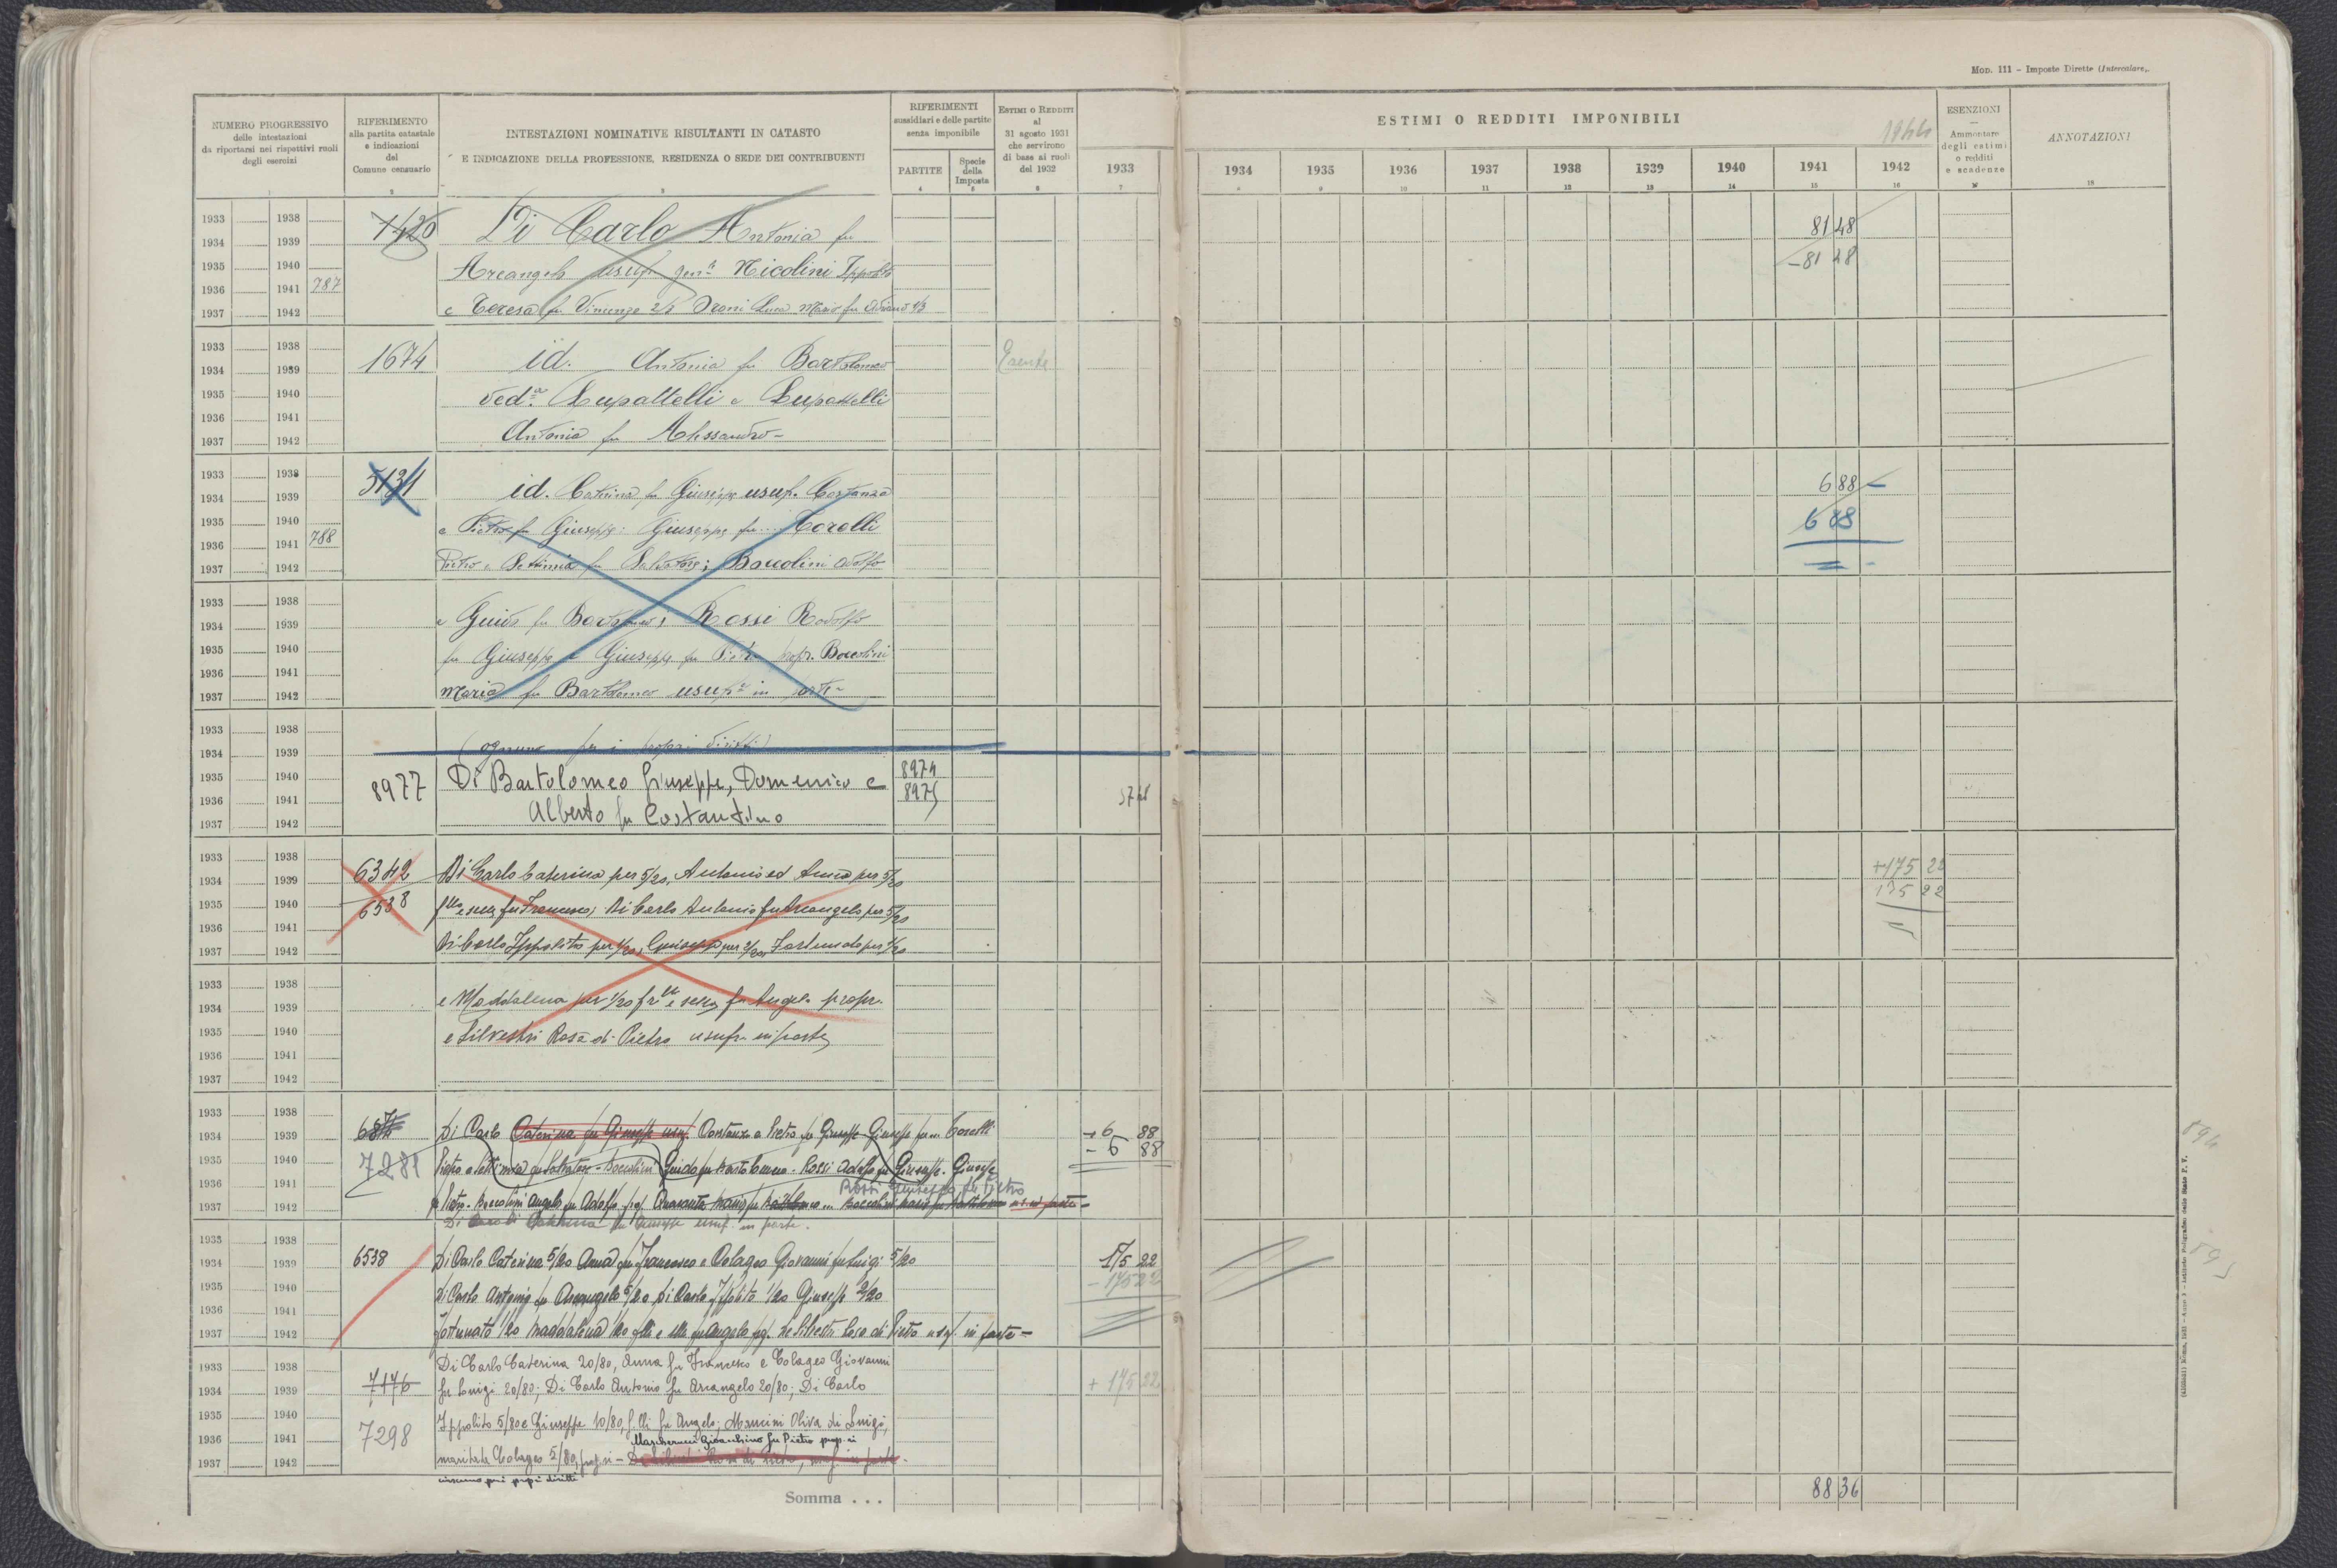 Mod. 111 - Imposte Dirette (Intercalare).
NUMERO PROGRESSIVO
delle intestazioni
da riportarsi nei rispettivi ruoli
degli esercizi
RIFERIMENTO
alla partita catastale
e indicazioni
del
Comune censuario
INTESTAZIONI NOMINATIVE RISULTANTI IN CATASTO
E INDICAZIONE DELLA PROFESSIONE, RESIDENZA O SEDE DEI CONTRIBUENTI
RIFERIMENTI
sussidiari e delle partite
senza imponibile
PARTITE
Specie
della
Imposta
ESTIMI O REDDITI
al
31 agosto 1931
che servirono
di base ai ruoli
del 1932
ESTIMI O REDDITI IMPONIBILI
1944
1933 1934 1935 1936 1937 1938 1939 1940 1941 1942
ESENZIONI
Ammontare
degli estimi
o redditi
e scadenze
ANNOTAZIONI
1 2 3 4 5 6 7 8 9 10 11 12 13 14 15 16 17 18
1933 1938 7420 Di Carlo Antonia fu 81 48
1934 1939
1935 1940 Arcangelo usufr. gen. Nicolini Ippolito -81 48
1936 1941 787
1937 1942 e Teresa fu Vincenzo 2/3 Luca Mario fu 1/3
1933 1938 1674 id. Antonia fu Bartolomeo Esente
1934 1939
1935 1940 ved.a Lupattelli e Lupattelli
1936 1941
1937 1942 Antonia fu Alessandro -
1933 1938 5131 id. Caterina fu Giuseppe usuf. Costanza 6 88
1934 1939
1935 1940 e Pietro fu Giuseppe; Giuseppe fu ... Corelli 6 88
1936 1941 788
1937 1942 Pietro e Settimia fu Salvatore; Boccolini Adolfo
1933 1938
1934 1939 e Guido fu Bartolomeo; Rossi Rodolfo
1935 1940 fu Giuseppe e Giuseppe fu Pietro propr. Boccolini
1936 1941
1937 1942 Maria fu Bartolomeo usufr. in parte
1933 1938
1934 1939 (ognuno per i propri diritti)
1935 1940 8977 Di Bartolomeo Giuseppe, Domenico e 8974
1936 1941 8975
1937 1942 Alberto fu Costantino
1933 1938 6342 Di Carlo Caterina per 5/20, Antonio ed Anna per 5/20 +175 22
1934 1939 175 22
1935 1940 6538 f.lli e sell. fu Francesco; Di Carlo Antonio fu Arcangelo per 5/20
1936 1941
1937 1942 Di Carlo Ippolito per 1/20, Giuseppe per 2/20, Fortunato per 1/20
1933 1938
1934 1939 e Maddalena per 1/20 fr.lli e sell. fu Angelo propr.
1935 1940 e Silvestri Rosa di Pietro usufr. in parte
1936 1941
1937 1942
1933 1938
1934 1939 Di Carlo Caterina fu Giuseppe usuf. Costanzo e Pietro fu Giuseppe Giuseppe fu ... Corelli + 6 88
1935 1940 7281 Pietro e Settimia fu Salvatore - Boccolini Guido fu Bartolomeo - Rossi Adolfo fu Giuseppe - Giuseppe - 6 88
1936 1941 Rossi Giuseppe fu Pietro
1937 1942 fu Pietro - Boccolini Angelo fu Adolfo prop. Quaranta Maria fu Bartolomeo ... Boccolini Maria fu Bartolomeo us. in parte -
Di Carlo Caterina fu Giuseppe usuf. in parte.
1933 1938
1934 1939 6538 Di Carlo Caterina 5/20 Anna fu Francesco e Colageo Giovanni fu Luigi 5/20 175 22
1935 1940 Di Carlo Antonio fu Arcangelo 5/20 Di Carlo Ippolito 1/20 Giuseppe 2/20 - 175 22
1936 1941
1937 1942 Fortunato 1/20 Maddalena 1/20 f.lli e s.lle fu Angelo prop. De Silvestri Rosa di Pietro usuf. in parte -
1933 1938 Di Carlo Caterina 20/80, Anna fu Francesco e Colageo Giovanni
1934 1939 7176 fu Luigi 20/80; Di Carlo Antonio fu Arcangelo 20/80; Di Carlo + 175 22
1935 1940 Ippolito 5/80 e Giuseppe 10/80, f.lli fu Angelo; Mancini Oliva di Luigi,
1936 1941 7298 Mascherucci Gioacchino fu Pietro prop. ri
1937 1942 maritata Colageo 5/80, propri - De Silvestri Rosa di Pietro, usuf. in parte.
ciascuno per i propri diritti
Somma . . . 88 36